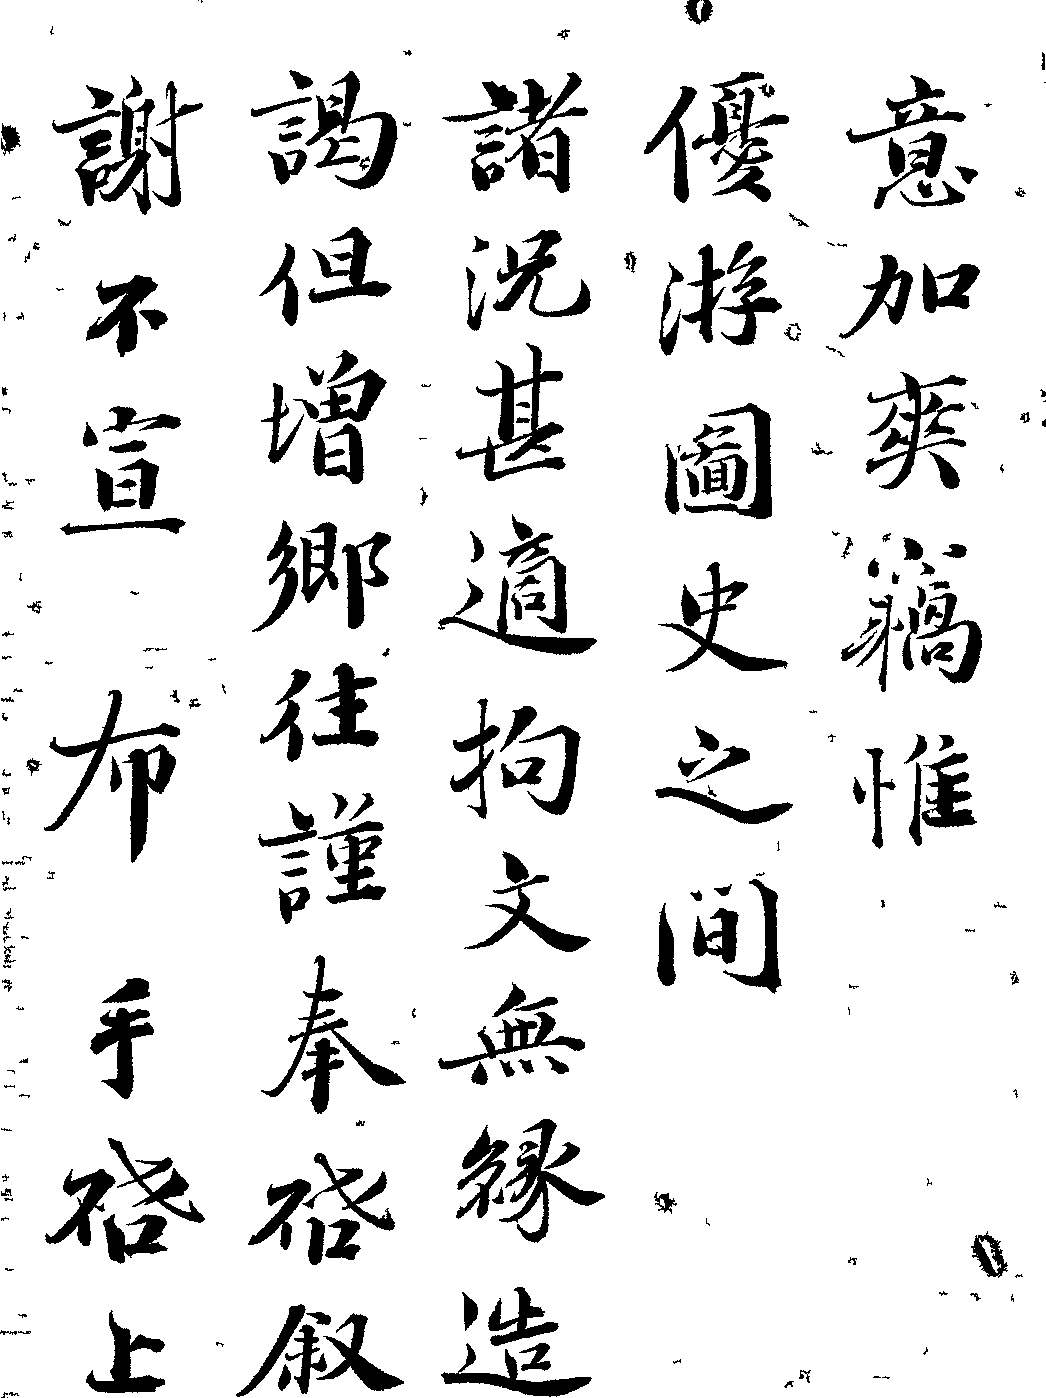 意加爽竊惟
優游圖史之間
諸況甚適拘文無緣造
謁但增鄉往謹奉啓叙
謝不宣 布 手啓上